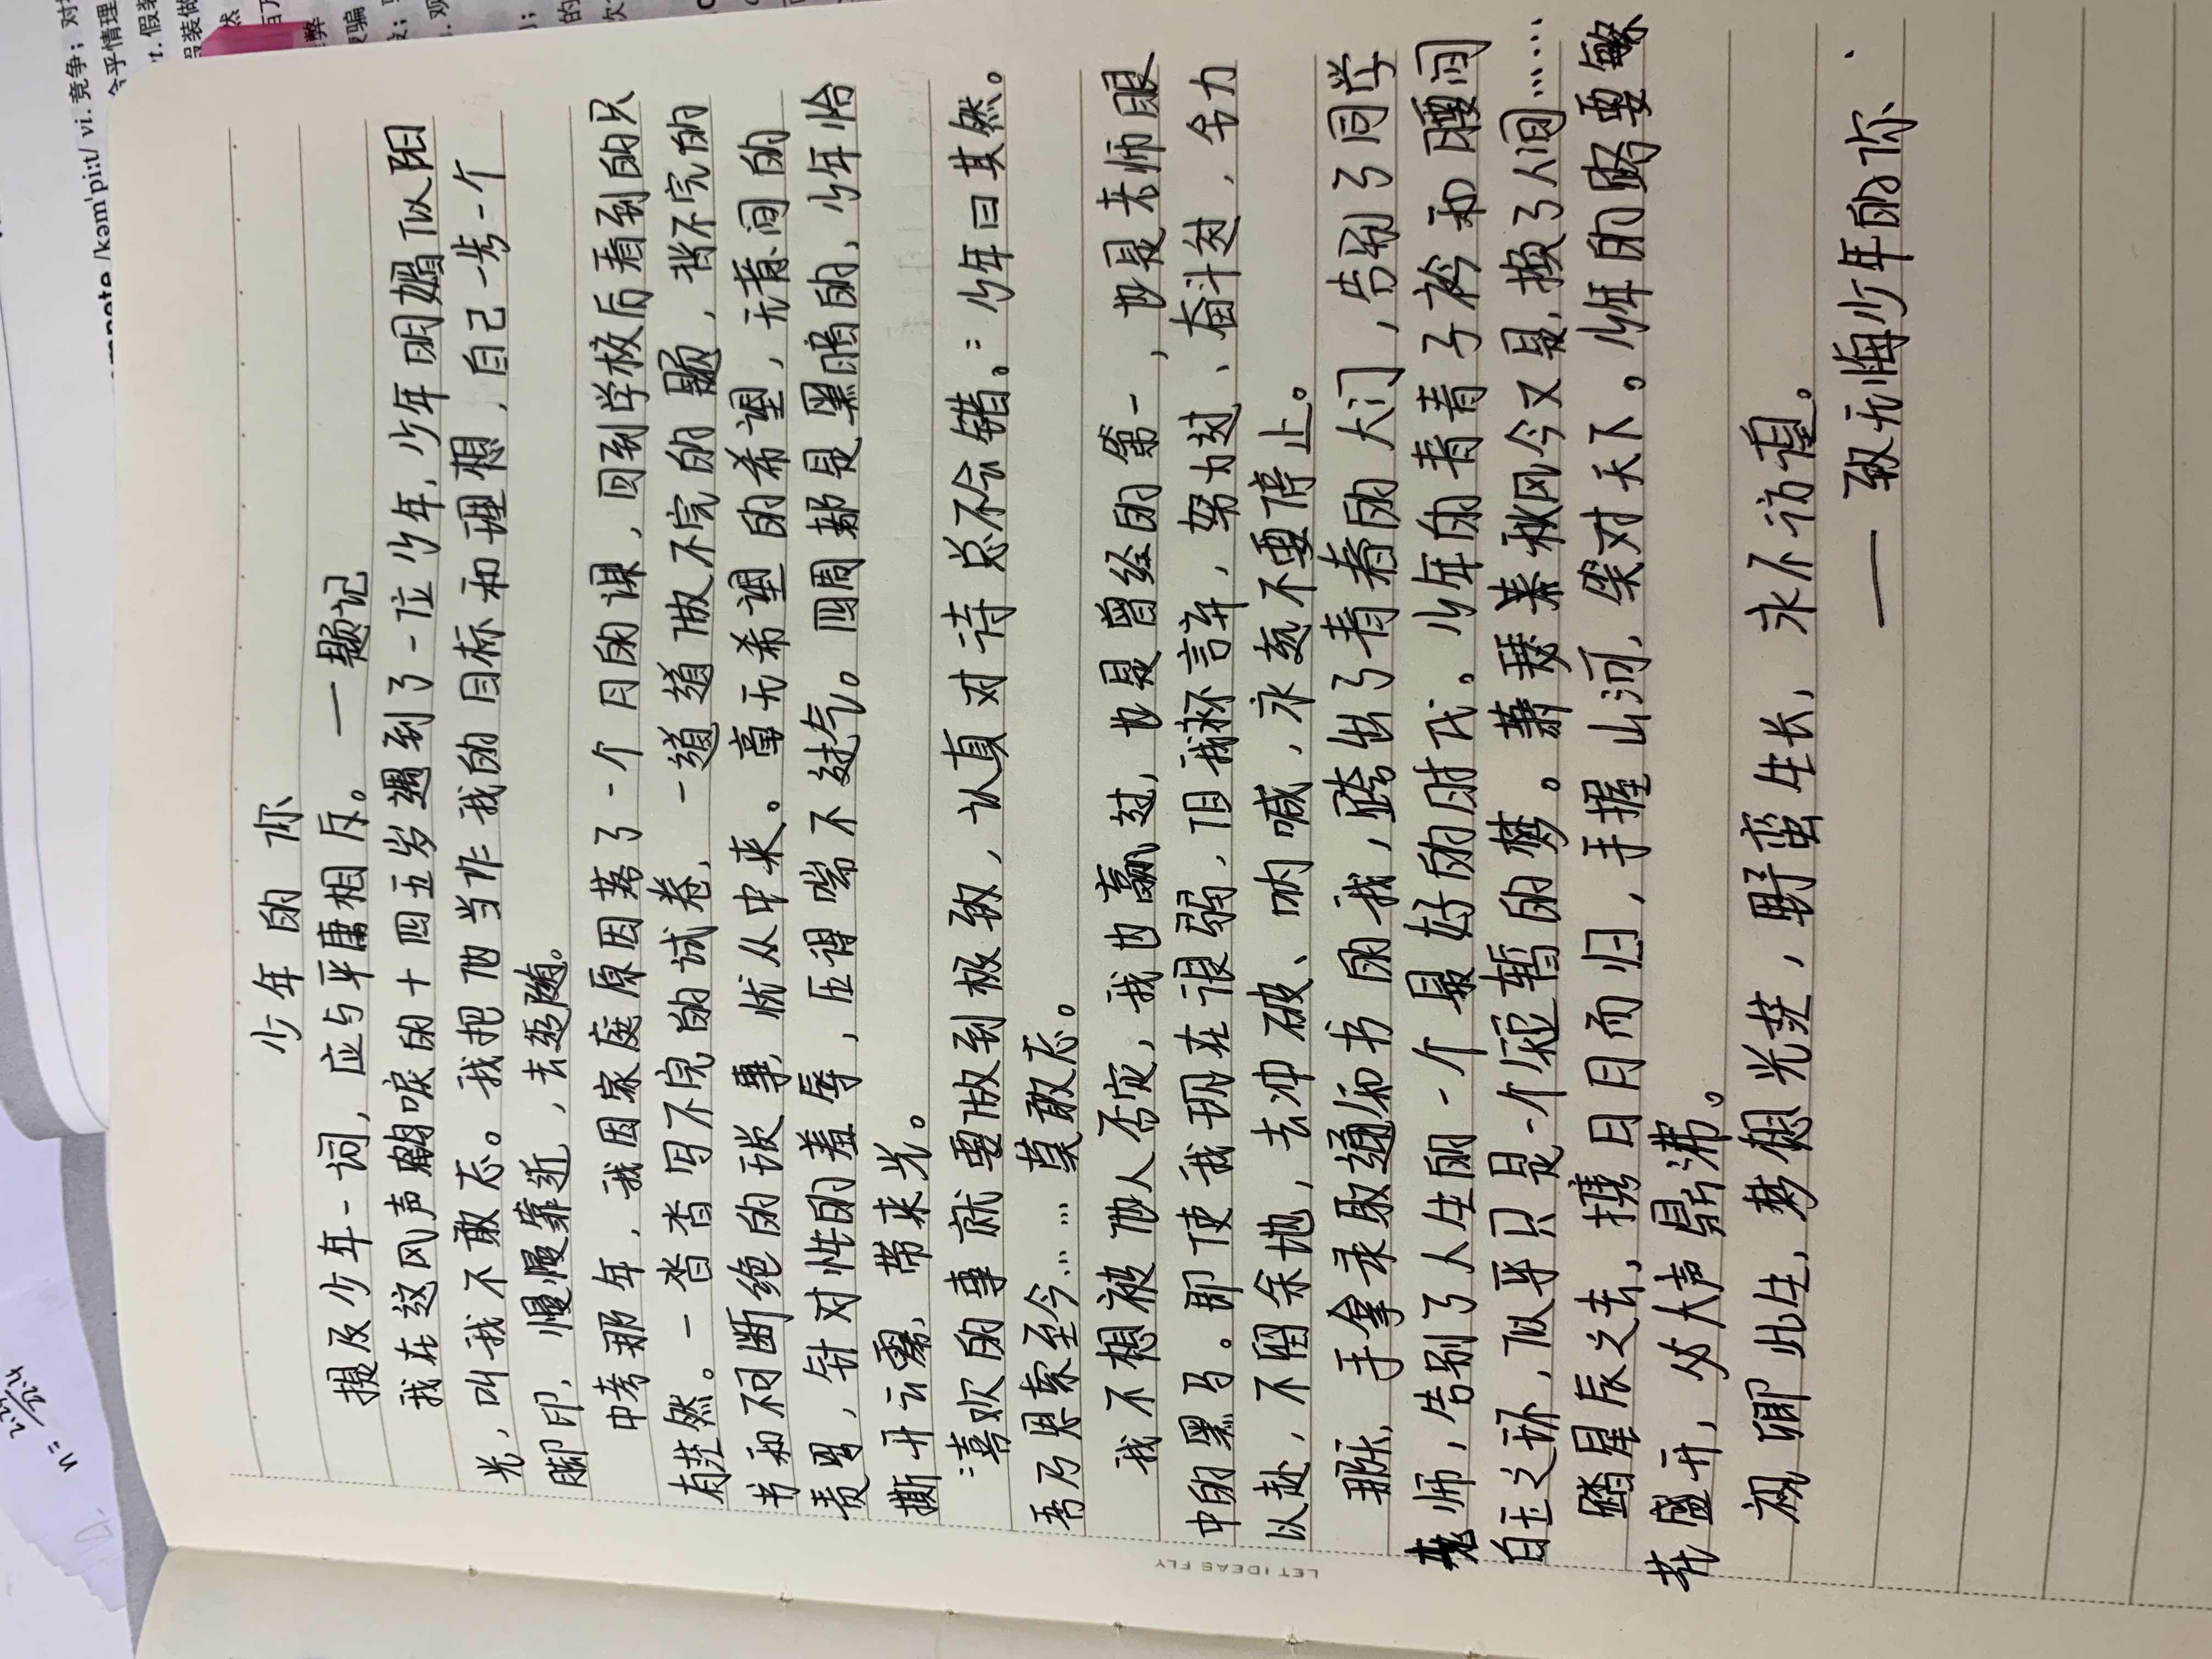 少年的你
提及少年一词，应与平庸相斥。—题记
我在这风声鹤唳的十四五岁遇到了一位少年，少年明媚似阳
光，叫我不敢忘。我把他当作我的目标和理想，自己一步一个
脚印，慢慢靠近，去追随。
中考那年，我因家庭原因落了一个月的课，回到学校后看到的只
有茫然。一沓沓写不完的试卷，一道道做不完的题，背不完的
书和不可断绝的琐事，忧从中来。毫无希望的希望，无意间的
责骂，针对性的羞辱，压得喘不过气。四周都是黑暗的，少年恰
撕开云雾，带来光。
“喜欢的事就要做到极致，认真对待总不会错。”少年曰其然。
吾乃思索至今……莫敢忘。
我不想被他人否定，我也赢过，也是曾经的第一，也是老师眼
中的黑马。即使我现在很弱，但我不言弃，努力过、奋斗过，全力
以赴，不留余地，去冲破、呐喊，永远不要停止。
那张，手拿录取通知书的我，跨出了青春的大门，告别了同学
老师，告别了人生的一个最好的时代。少年的青青子衿和腰间
白玉之环，似乎只是一个短暂的梦。萧瑟秋风今又是，换了人间……
踏星辰之去，携日月而归，手握山河，笑对天下。少年的路要繁
花盛开，必大声鼎沸。
祝卿此生，梦想光芒，野蛮生长，永不彷徨。
——致无悔少年的你.
LET IDEAS FLY
/kəm'piːt/ vi. 竞争；对
n=